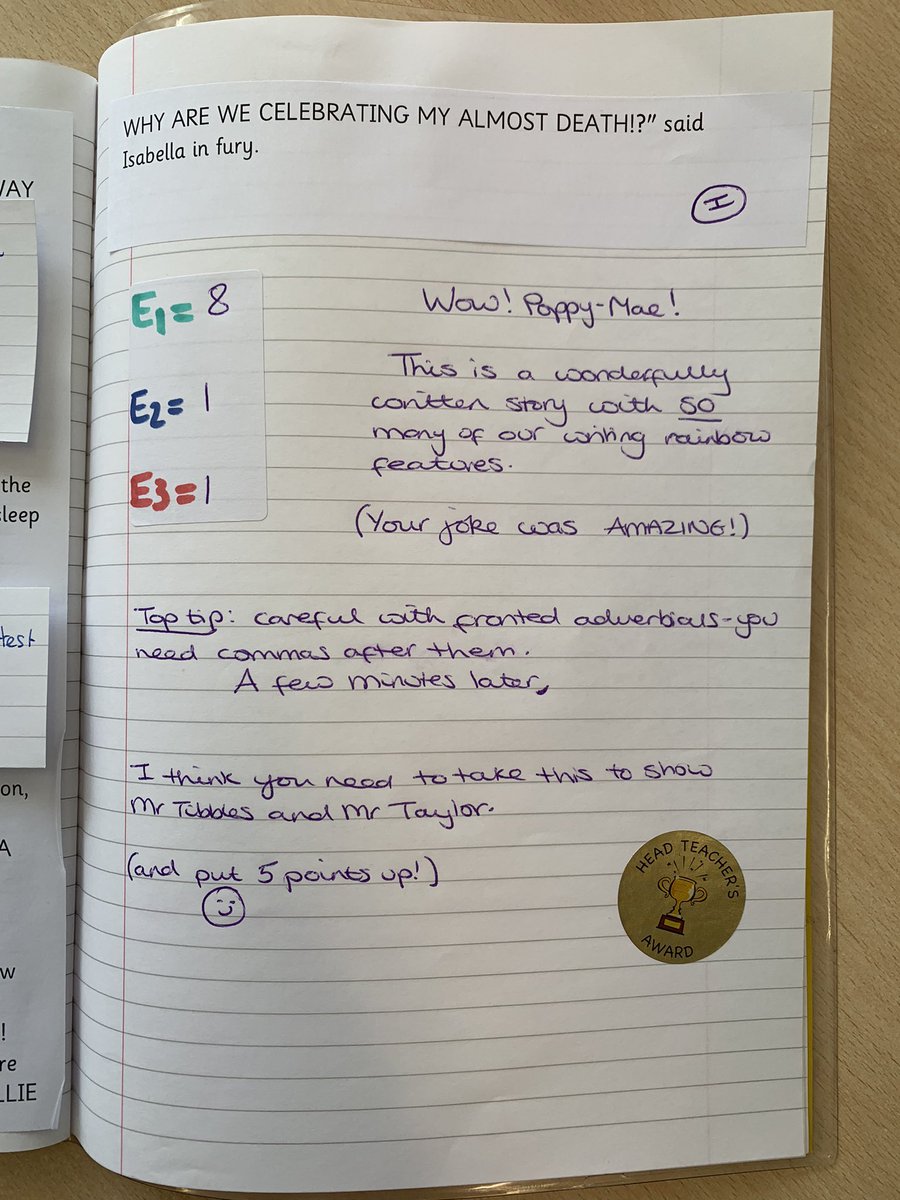 WAY
the
sleep
test
on,
A
w
!
re
LLIE
WHY ARE WE CELEBRATING MY ALMOST DEATH!?” said
Isabella in fury.
I
E1= 8
E2= 1
E3=1
Wow! Poppy-Mae!
This is a wonderfully
written story with so
many of our writing rainbow
features.
(Your joke was AMAZING!)
Top tip: careful with fronted adverbials-you
need commas after them.
A few minutes later,
I think you need to take this to show
Mr Tibbles and Mr Taylor.
(and put 5 points up!)
HEAD TEACHER'S
AWARD